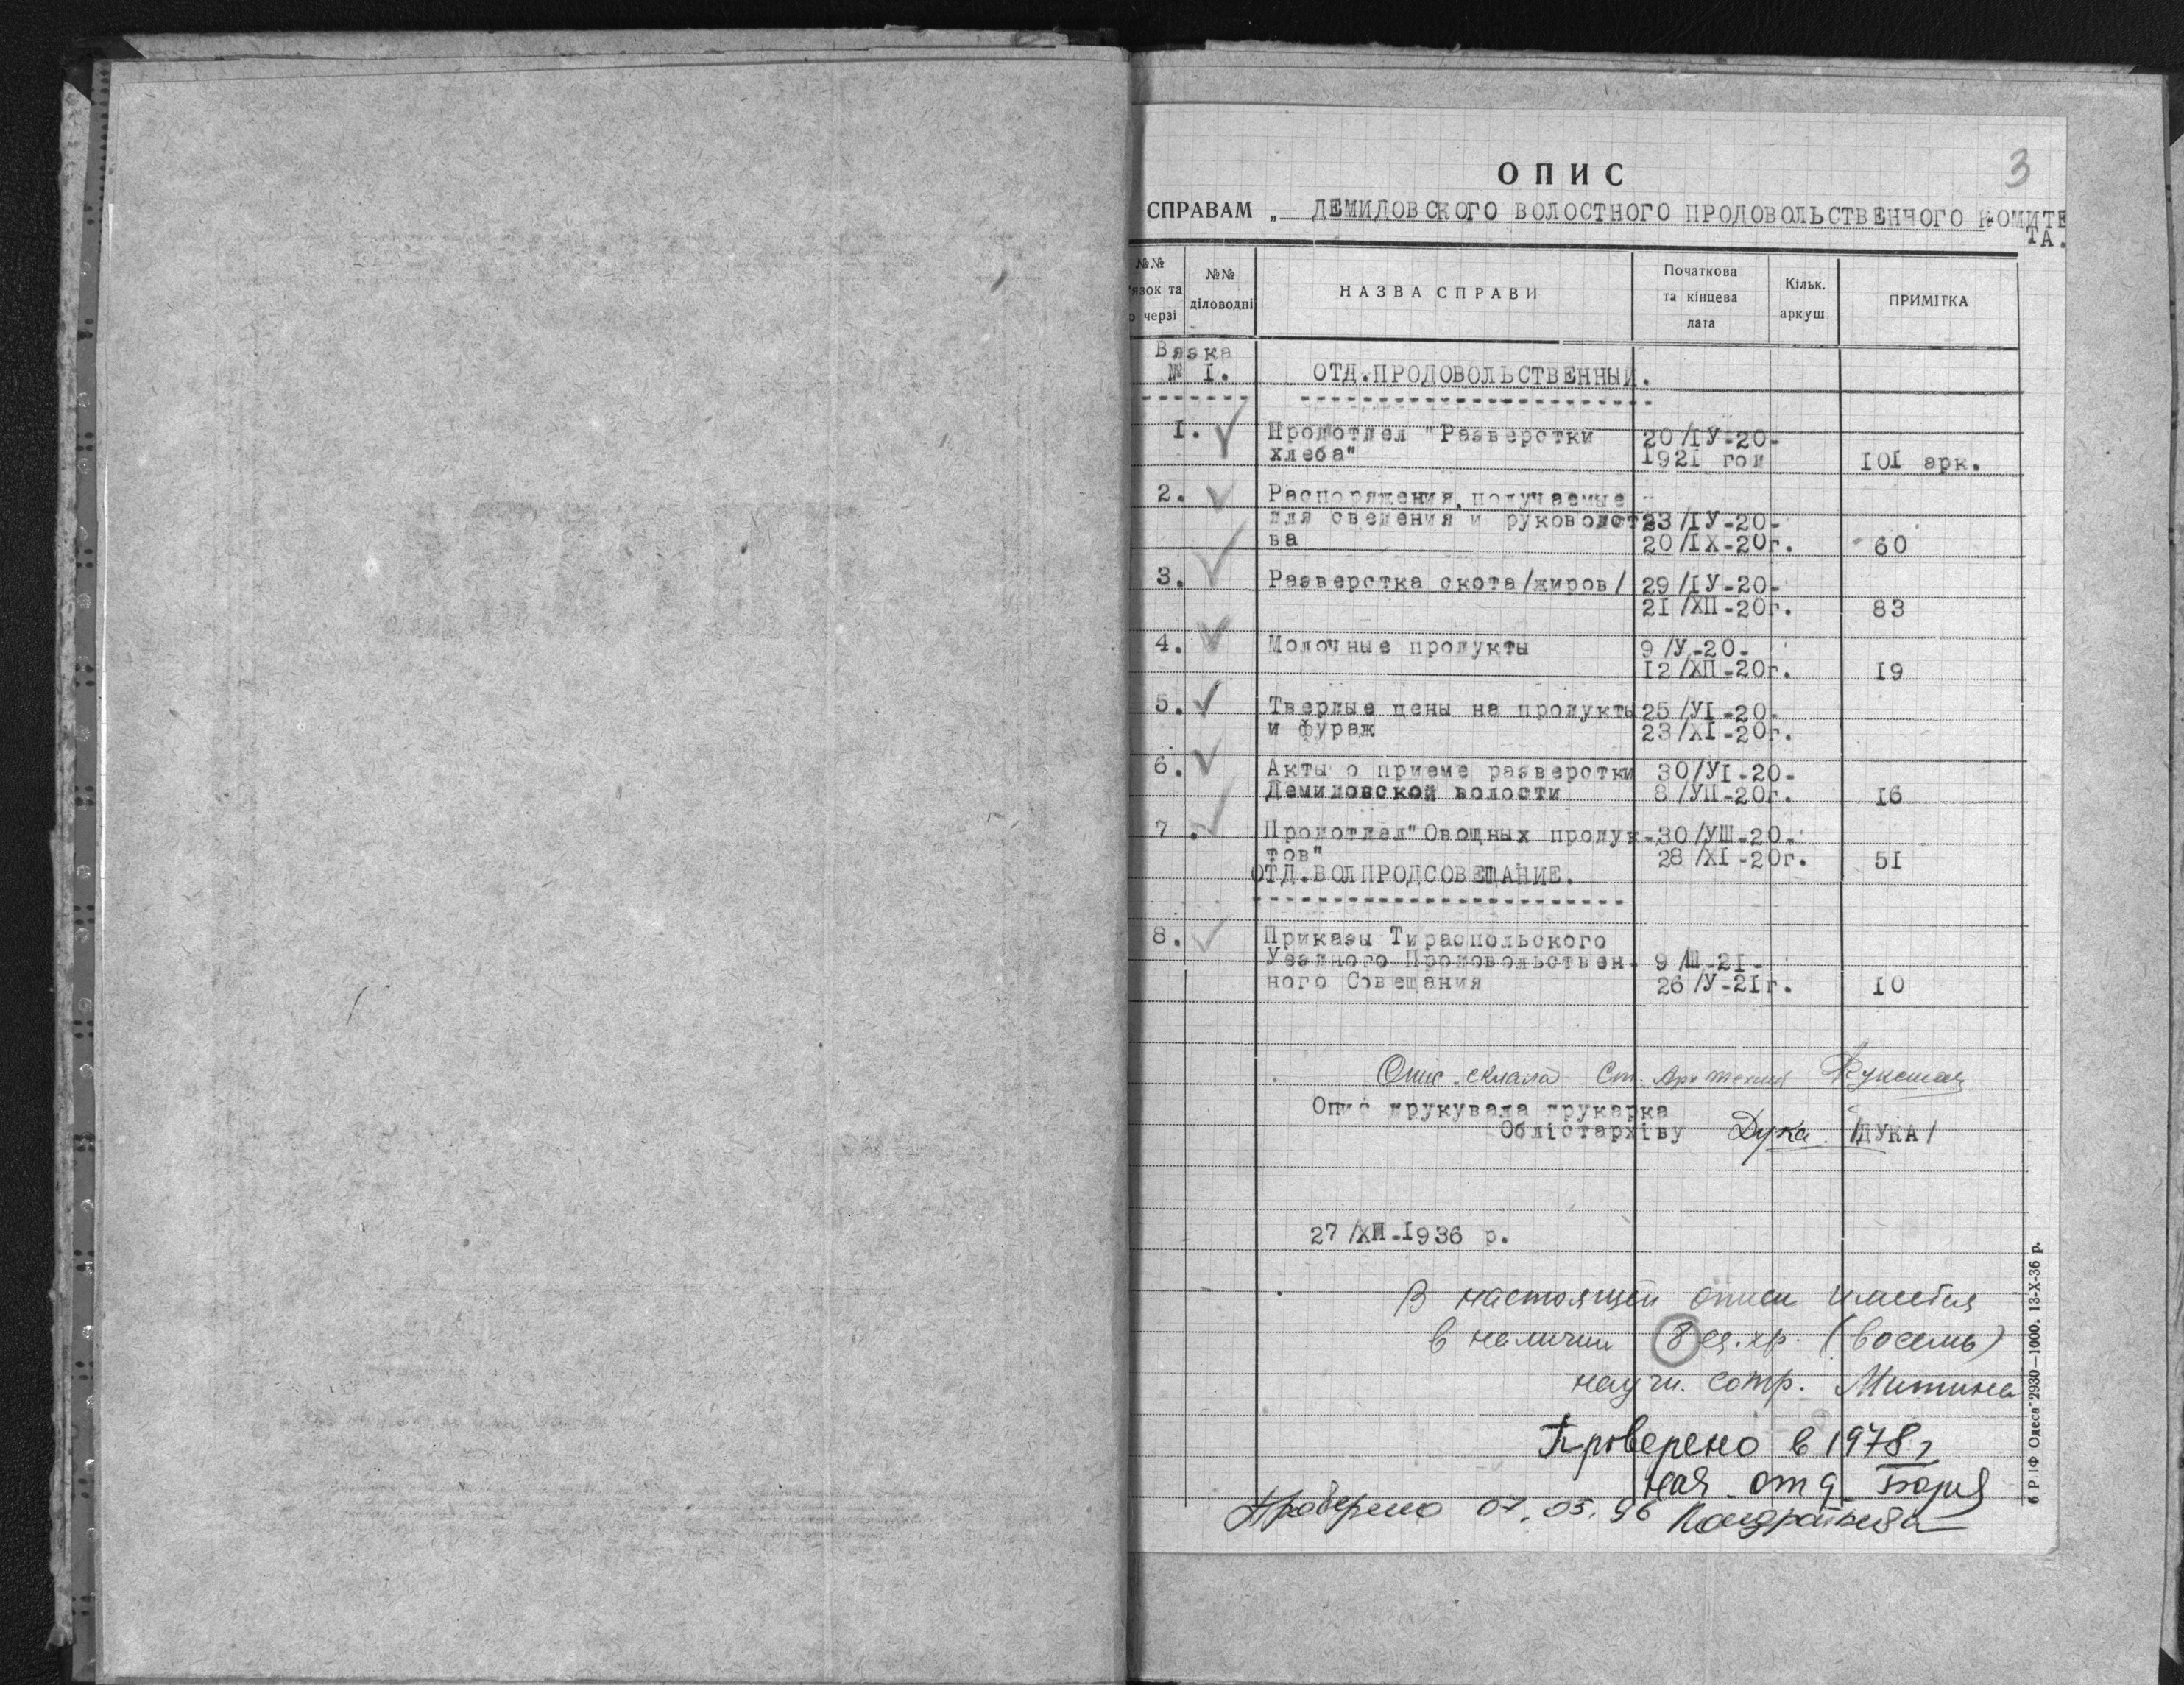 3
ОПИС
СПРАВАМ „ ДЕМИДОВСКОГО ВОЛОСТНОГО ПРОДОВОЛЬСТВЕННОГО КОМИТЕ
ТА.
№№ язок та черзі
№№ діловодні
НАЗВА СПРАВИ
Початкова та кінцева дата
Кільк. аркуш
ПРИМІТКА
Вязка
№ I. ОТД.ПРОДОВОЛЬСТВЕННЫЙ.
I. Продотдел "Разверстки 20/IУ-20-
хлеба" 1921 год 101 арк.
2. Распоряжения, получаемые
для сведения и руководст 23/IУ-20-
ва 20/IX-20г. 60
3. Разверстка скота/жиров/ 29/IУ-20-
21/ХП-20г. 83
4. Молочные продукты 9/У-20-
12/ХП-20г. 19
5. Твердые цены на продукты 25/УI-20-
и фураж 23/XI-20г.
6. Акты о приеме разверстки 30/УI-20-
Демидовской волости 8/УП-20г. 16
7. Продотдел"Овощных продук-30/УШ-20-
тов" 28/XI-20г. 51
ОТД.ВОЛПРОДСОВЕЩАНИЕ.
8. Приказы Тираспольского
Уездного Продовольствен- 9/Ш-21-
ного Совещания 26/У-21г. 10
Опис склала Ст.
Опис друкувала друкарка
Облістархіву Дука /ДУКА/
27/ХП-1936 р.
В настоящей описи имеется
в наличии 8 ед.хр. (восемь)
научн. сотр. Митина
Проверено в 1978г
нач. отд.
Проверено 07.05.96 Кондратьева
6 Р ІФ Одеса 2930—1000. 13-X-36 р.